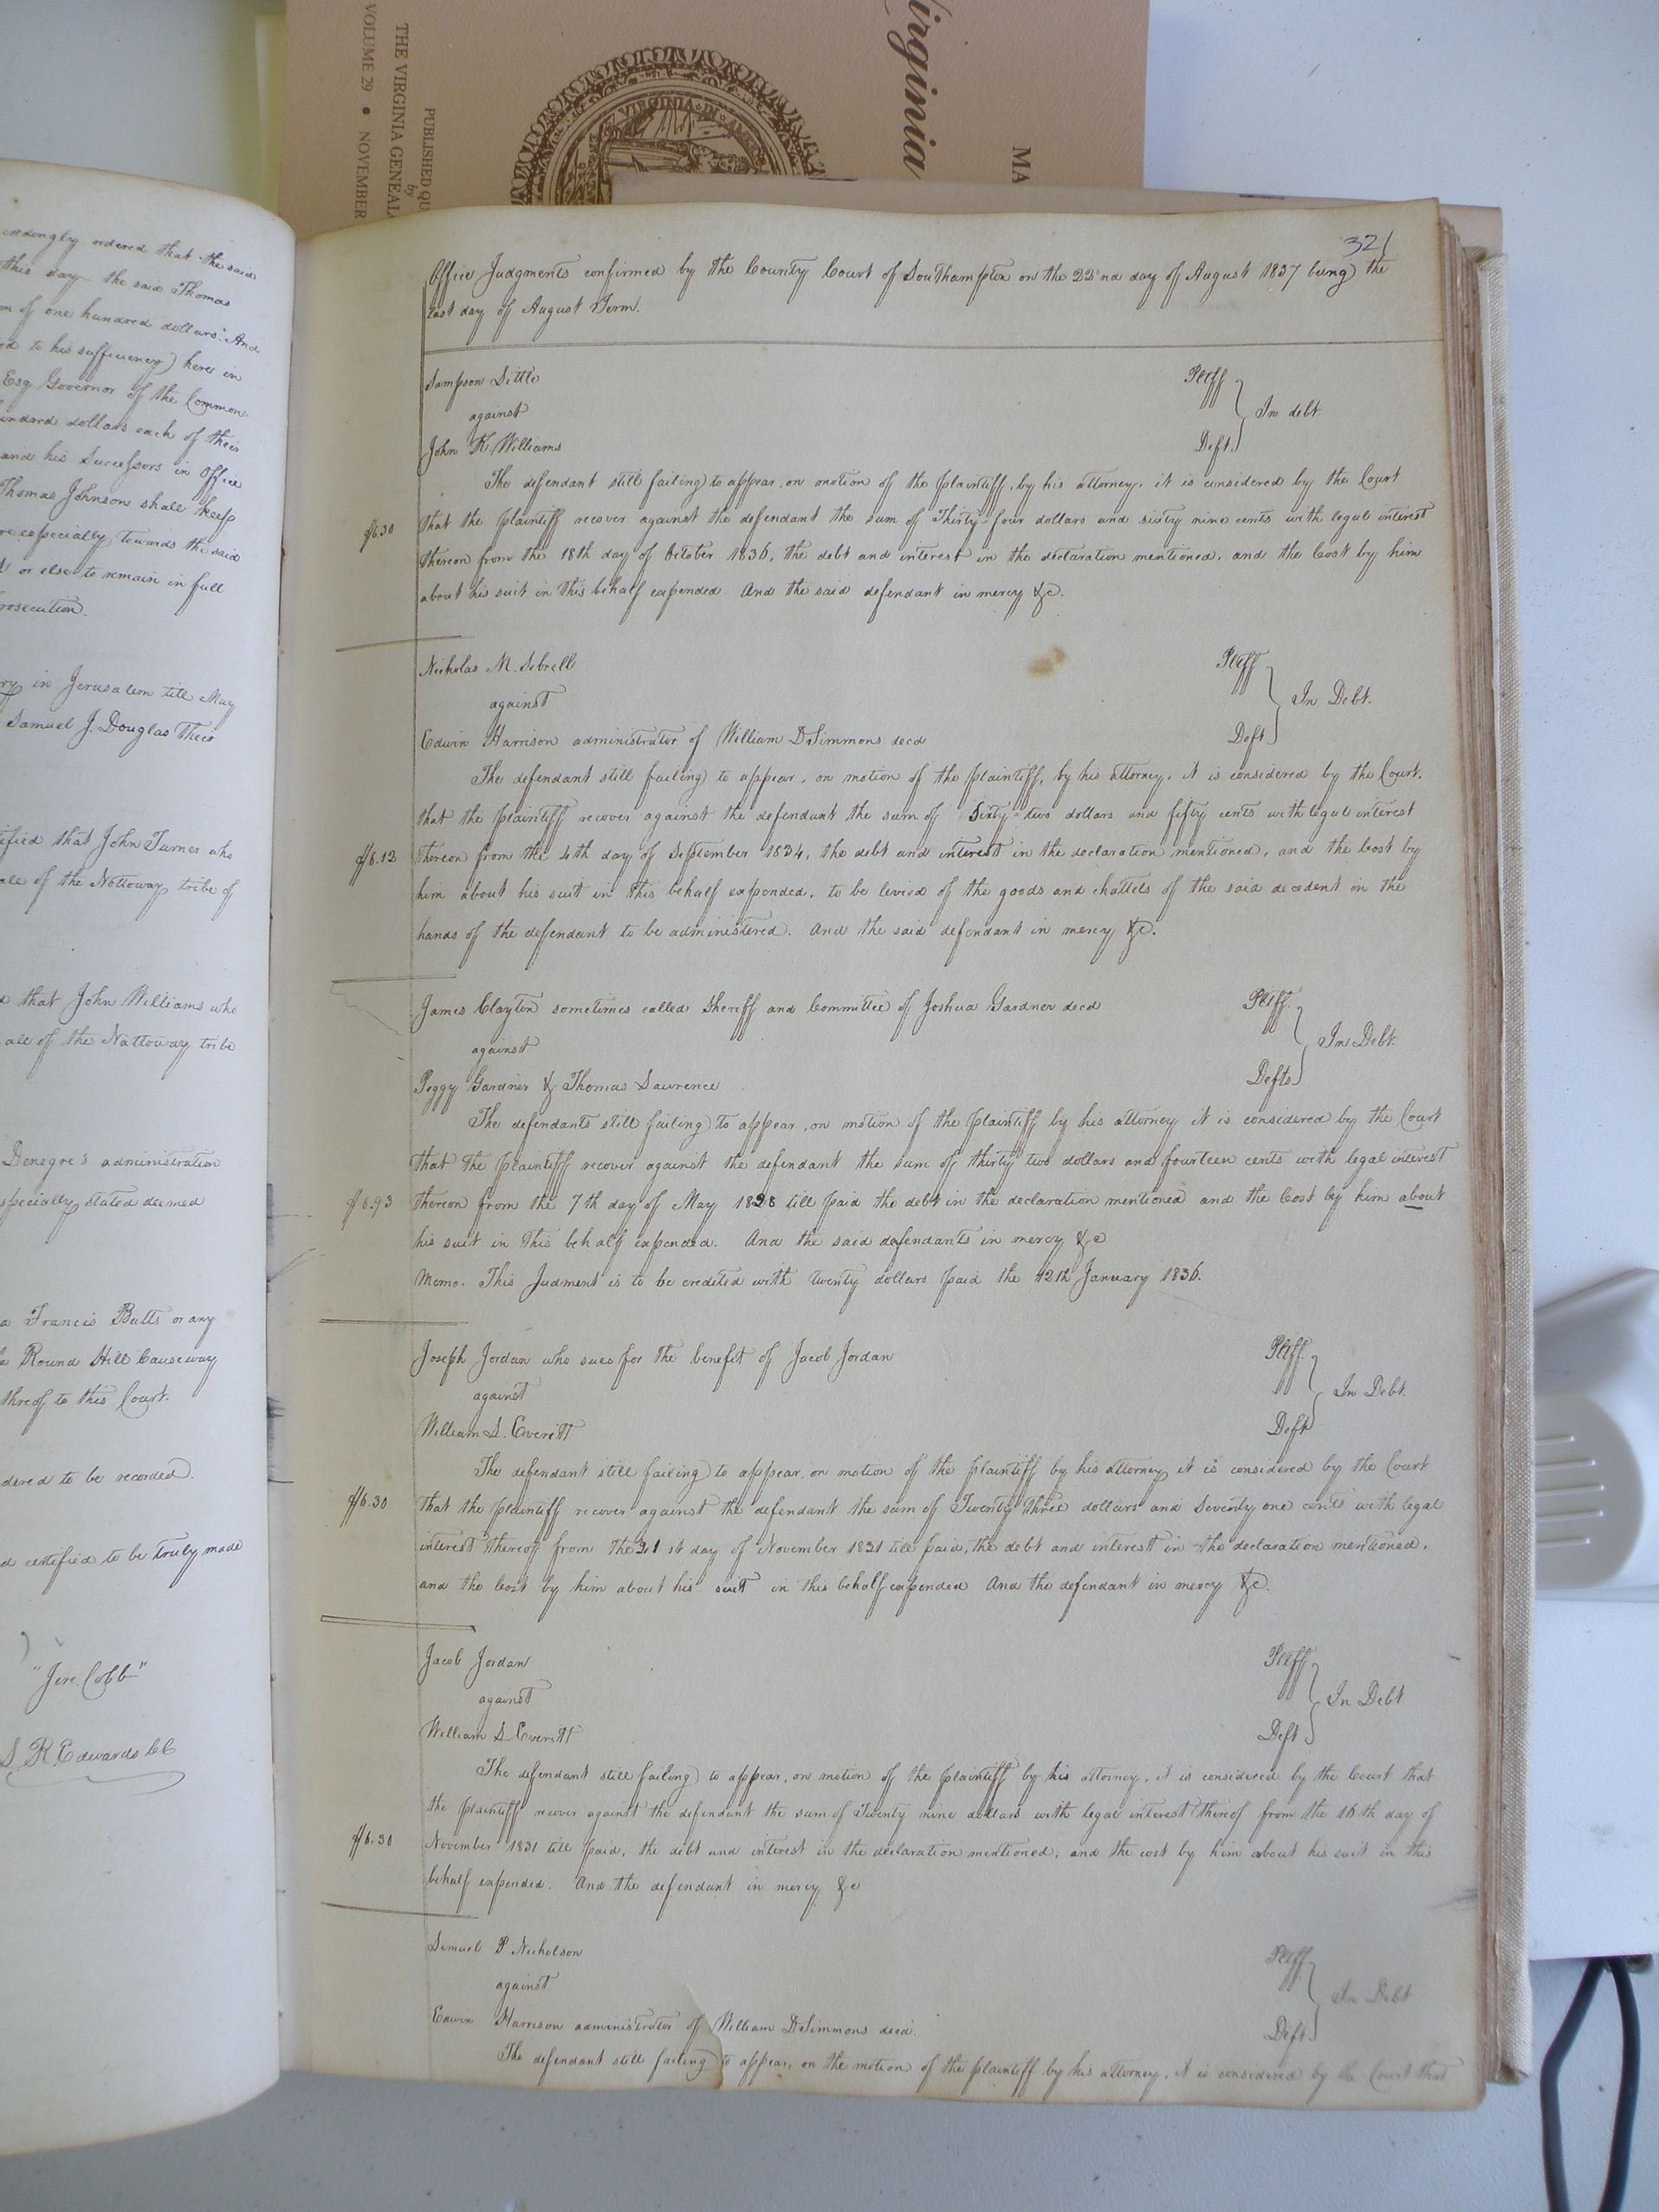 Virginia
MA
PUBLISHED QU
by
THE VIRGINIA GENEAL
VOLUME 29 • NOVEMBER
VIRGINIA IN
ordered that the said
this day the said Thomas
of one hundred dollars. And
ed to his sufficiency) here in
Esq Governor of the Common
hundred dollars each of their
and his Successors in Office
Thomas Johnson shall keep
especially towards the said
or else to remain in full
prosecution.
in Jerusalem till May
Samuel J. Douglas Their
ified that John Turner who
ale of the Nottoway tribe of
that John Williams who
ale of the Nattoway tribe
Denegre's administration
specially stated deemed
Francis Butts or any
Round Hill Causeway
threof to this Court.
dered to be recorded.
d certified to be truly made
"Jere Cobb"
S. R. Edwards CC
321
Office Judgments confirmed by the County Court of Southampton on the 22nd day of August 1837 being the
last day of August Term.
Sampson Little Pltff
against In debt
John K. Williams Deft
The defendant still failing to appear, on motion of the plaintiff, by his attorney, it is considered by the Court
$6.30 that the plaintiff recover against the defendant the sum of Thirty-four dollars and sixty nine cents with legal interest
thereon from the 18th day of October 1836, the debt and interest in the declaration mentioned, and the Cost by him
about his suit in this behalf expended. And the said defendant in mercy &c.
Nicholas M. Sebrell Pltff
against In Debt.
Edwin Harrison administrator of William D Simmons decd Deft
The defendant still failing to appear, on motion of the plaintiff, by his attorney, it is considered by the Court,
that the plaintiff recover against the defendant the sum of Sixty-two dollars and fifty cents with legal interest
$6.12 thereon from the 4th day of September 1834, the debt and interest in the declaration mentioned, and the Cost by
him about his suit in this behalf expended, to be levied of the goods and chattels of the said decedent in the
hands of the defendant to be administered. And the said defendant in mercy &c.
James Clayton sometimes called Sheriff and Committee of Joshua Gardner decd Pltff.
against In Debt.
Peggy Gardner & Thomas Lawrence Defts
The defendants still failing to appear, on motion of the plaintiff by his attorney it is considered by the Court
that the plaintiff recover against the defendant the sum of thirty two dollars and fourteen cents with legal interest
$6.93 thereon from the 7th day of May 1828 till paid the debt in the declaration mentioned and the Cost by him about
his suit in this behalf expended. And the said defendants in mercy &c
Memo. This Judment is to be credited with twenty dollars paid the 12th January 1836.
Joseph Jordan who sues for the benefit of Jacob Jordan Pltff.
against In Debt.
William S. Everitt Deft
The defendant still failing to appear, on motion of the plaintiff by his attorney it is considered by the Court
$6.30 that the plaintiff recover against the defendant the sum of Twenty three dollars and Seventy one cents with legal
interest thereof from the 21st day of November 1831 till paid, the debt and interest in the declaration mentioned,
and the Cost by him about his suit in this behalf expended And the defendant in mercy &c.
Jacob Jordan Pltff
against In Debt
William S Everitt Deft
The defendant still failing to appear, on motion of the plaintiff by his attorney, it is considered by the Court that
the plaintiff recover against the defendant the sum of Twenty nine dollars with legal interest thereof from the 16th day of
$6.30 November 1831 till paid, the debt and interest in the declaration mentioned, and the cost by him about his suit in this
behalf expended. And the defendant in mercy &c
Samuel P Nicholson Pltff
against In Debt
Edwin Harrison administrator of William D Simmons decd. Deft
The defendant still failing to appear, on the motion of the plaintiff by his attorney, it is considered by the Court that